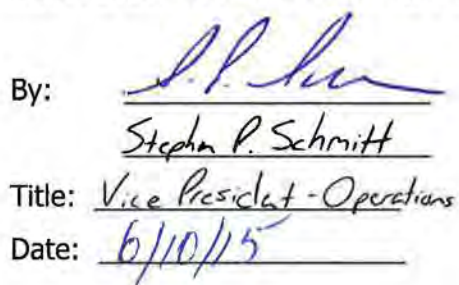 By:
Stephen P. Schmitt
Title: Vice President - Operations
Date: 6/10/15